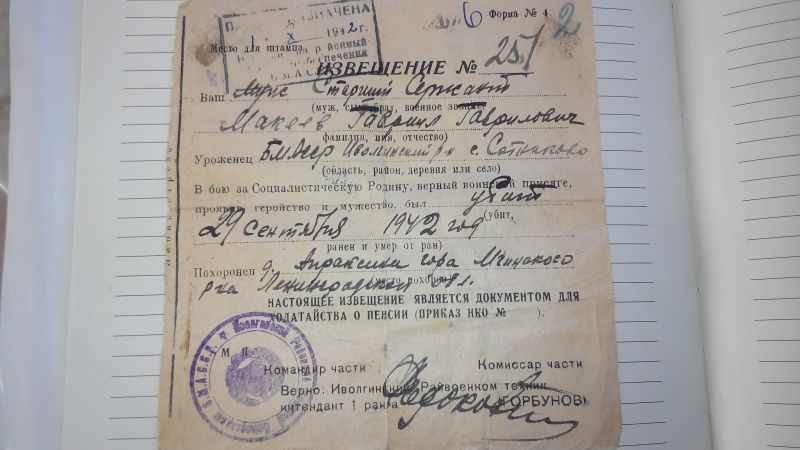 6 Форма № 4. 2
1942 г.
Место для штампа
ИЗВЕЩЕНИЕ № 251
Ваш муж Старший Сержант
(муж, сын, брат, военное звание)
Макеев Гавриил Гаврилович
(фамилия, имя, отчество)
Уроженец БМАССР Иволгинский р-н с. Сотниково
(область, район, деревня или село)
В бою за Социалистическую Родину, верный воинской присяге,
проявив геройство и мужество, был убит
(убит,
29 сентября 1942 год
ранен и умер от ран)
Похоронен д. Апраксина гора Мгинского
р-на Ленинградской обл.
НАСТОЯЩЕЕ ИЗВЕЩЕНИЕ ЯВЛЯЕТСЯ ДОКУМЕНТОМ ДЛЯ
ХОДАТАЙСТВА О ПЕНСИИ (ПРИКАЗ НКО № ).
М
Командир части Комиссар части
Верно: Иволгинский Райвоенком техник
интендант 1 ранга (ГОРБУНОВ)